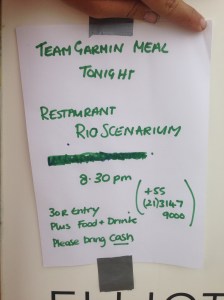 TEAM GARMIN MEAL
TONIGHT
RESTAURANT
RIO SCENARIUM
8.30 pm
(+55
(21)3147
9000)
30R Entry
Plus Food + Drink
Please bring Cash